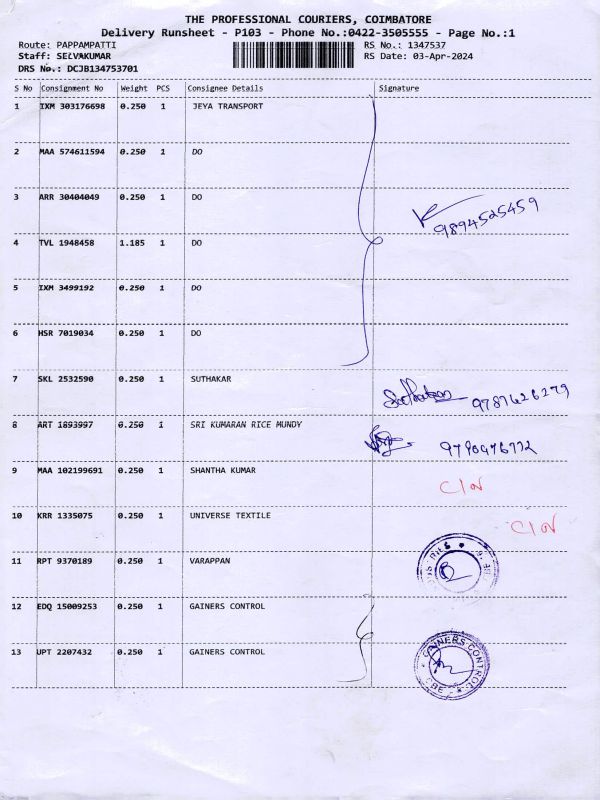 THE PROFESSIONAL COURIERS, COIMBATORE
Delivery Runsheet - P103 - Phone No.:0422-3505555 - Page No.:1
Route: PAPPAMPATTI RS No.: 1347537
Staff: SELVAKUMAR RS Date: 03-Apr-2024
DRS No.: DCJB134753701
S No Consignment No Weight PCS Consignee Details Signature
1 IXM 303176698 0.250 1 JEYA TRANSPORT
2 MAA 574611594 0.250 1 DO
3 ARR 30404049 0.250 1 DO
9894525459
4 TVL 1948458 1.185 1 DO
5 IXM 3499192 0.250 1 DO
6 HSR 7019034 0.250 1 DO
7 SKL 2532590 0.250 1 SUTHAKAR
8 ART 1893997 0.250 1 SRI KUMARAN RICE MUNDY
9 MAA 102199691 0.250 1 SHANTHA KUMAR
C/N
10 KRR 1335075 0.250 1 UNIVERSE TEXTILE
C/N
11 RPT 9370189 0.250 1 VARAPPAN
12 EDQ 15009253 0.250 1 GAINERS CONTROL
13 UPT 2207432 0.250 1 GAINERS CONTROL
GAINERS CONTROL
CBE